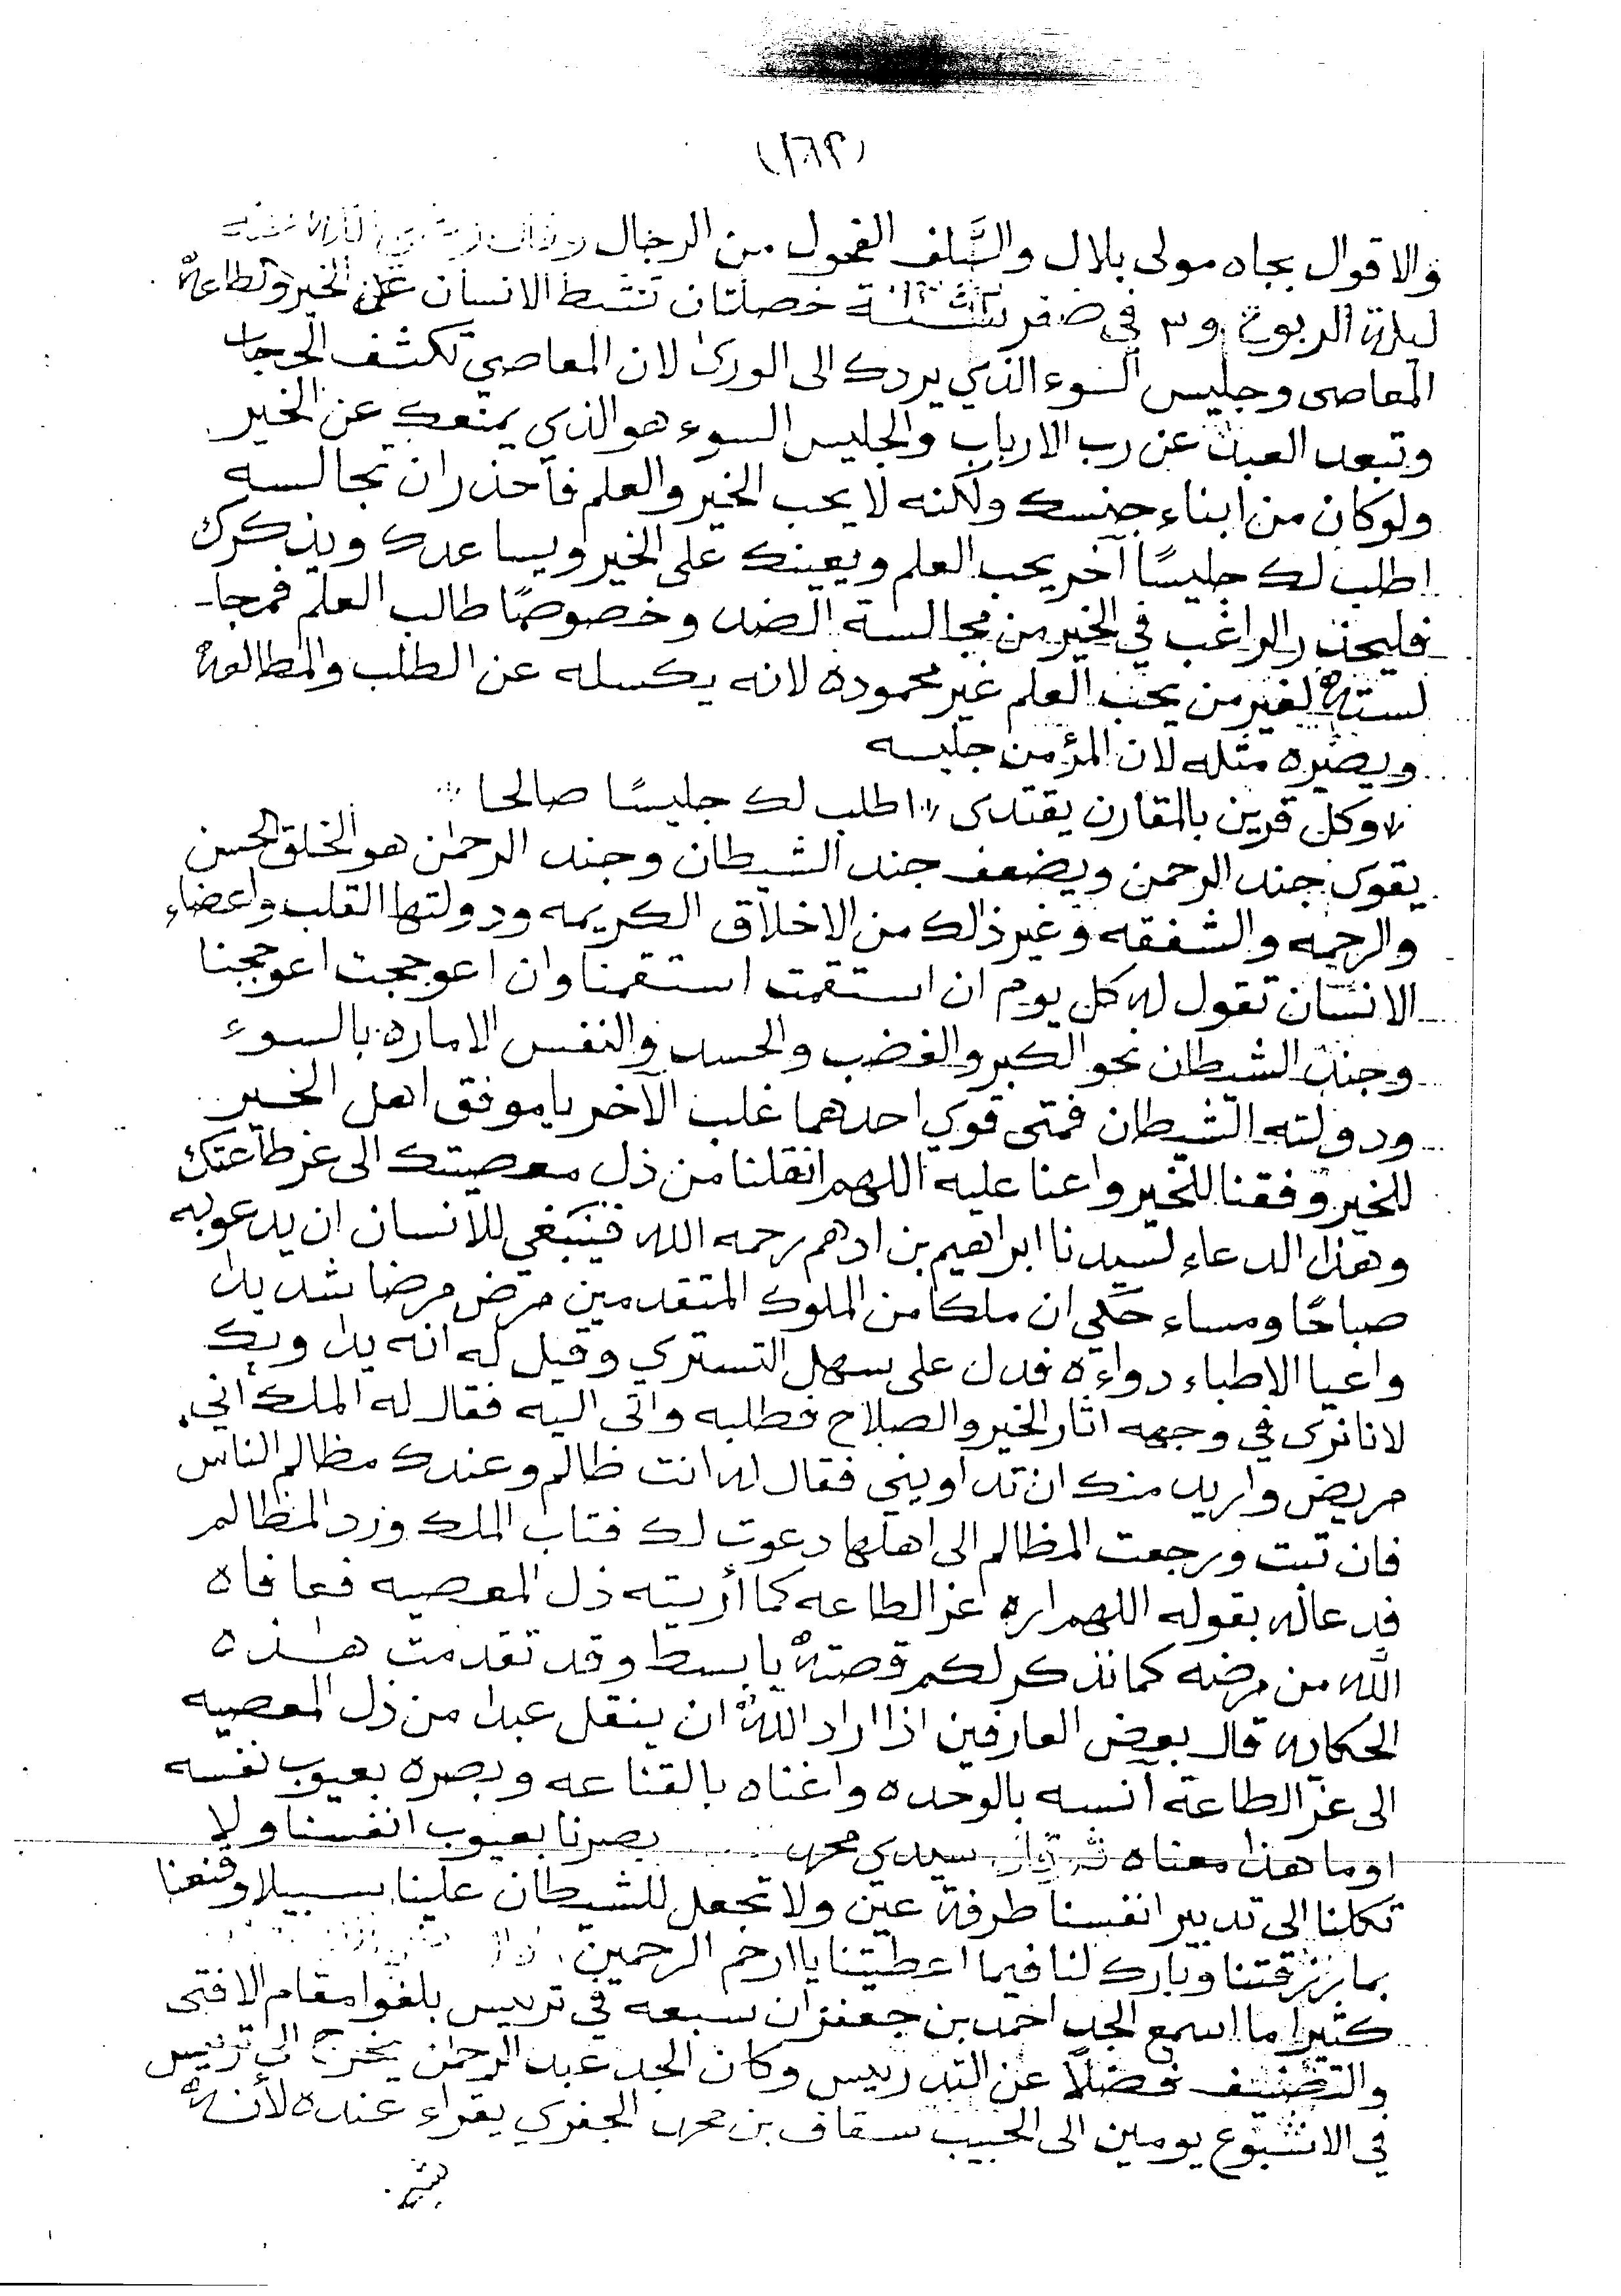 (١٦٢)
والاقوال بجاه مولى بلال والسَّلف الفحول من الرجال
ليلة الربوع و٣ في صفر سنة خصلتان تنشط الانسان على الخير وطاعة
المعاصى وجليس السوء الذي يردك الى الورى لان المعاصي تكشف الحجاب
وتبعد العبد عن رب الارباب والجليس السوء هو الذي يمنعك عن الخير
ولو كان من ابناء جنسك ولكنه لا يحب الخير والعلم فاحذر ان تجالسه
اطلب لك جليسًا آخر يحب العلم ويعينك على الخير ويساعدك ويذكرك
فليحذر الراغب في الخير من مجالسة الضد وخصوصًا طالب العلم فمجا-
لسته لغير من يحب العلم غير محموده لانه يكسله عن الطلب والمطالعة
ويصيره مثله لان المؤمن جليسه
وكل قرين بالمقارن يقتدى اطلب لك جليسًا صالحا
يقوى جند الرحمن ويضعف جند الشيطان وجند الرحمن هو الخلق الحسن
والرحمه والشفقه وغير ذالك من الاخلاق الكريمه ودولتها القلب واعضاء
الانسان تقول له كل يوم ان استقمت استقمنا وان اعوججت اعوججنا
وجند الشيطان نحو الكبر والغضب والحسد والنفس الاماره بالسوء
ودولته الشيطان فمتى قوي احدهما غلب الآخر يا موفق اهل الخير
للخير وفقنا للخير واعنا عليه اللهم انقلنا من ذل معصيتك الى عز طاعتك
وهذا الدعاء لسيدنا ابراهيم بن ادهم رحمه الله فينبغي للانسان ان يدعو به
صباحًا ومساء حكي ان ملكا من الملوك المتقدمين مرض مرضا شديدا
واعيا الاطباء دواءه فدل على سهل التستري وقيل له انه يداويك
لانا نرى في وجهه اثار الخير والصلاح فطلبه واتى اليه فقال له الملك أني
مريض واريد منك ان تداويني فقال له انت ظالم وعندك مظالم الناس
فان تبت ورجعت المظالم الى اهلها دعوت لك فتاب الملك ورد المظالم
فدعاله بقوله اللهم اره عز الطاعه كما أريته ذل المعصيه فعافاه
الله من مرضه كما نذكر لكم قصته يا بسط وقد تقدمت هذه
الحكايه قال بعض العارفين اذا اراد الله ان ينقل عبدا من ذل المعصيه
الى عز الطاعة آنسه بالوحده واغناه بالقناعه وبصره بعيوب نفسه
اوما هذا معناه سيدي محمد بصرنا بعيوب انفسنا ولا
تكلنا الى تدبير انفسنا طرفة عين ولا تجعل للشيطان علينا سبيلا وقنعنا
بما رزقتنا وبارك لنا فيما اعطيتنا يا ارحم الرحمين
كثيرا ما اسمع الجد احمد بن جعفر ان سبعه في تريس بلغوا مقام الافتى
والتصنيف فضلًا عن التدريس وكان الجد عبد الرحمن يخرج الى تريس
في الاسبوع يومين الى الحبيب سقاف بن محمد الجفري يقراء عنده لأنه